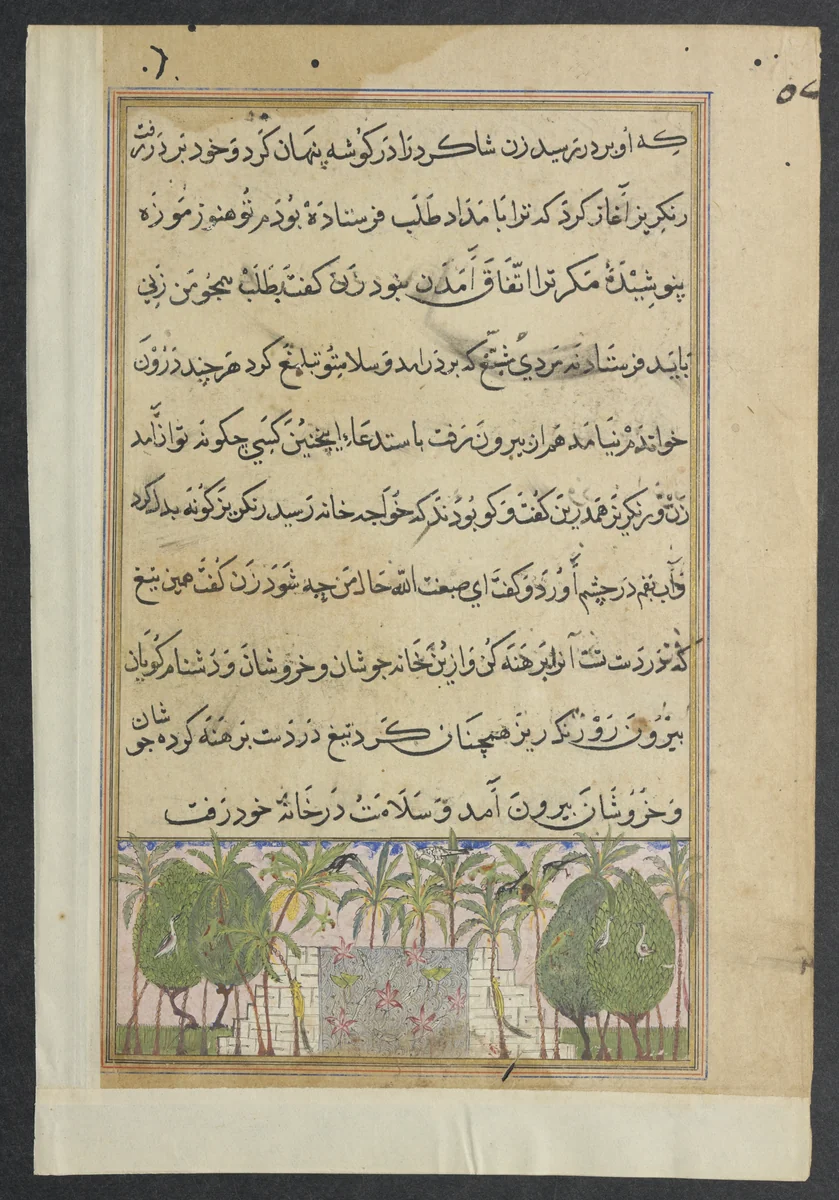 که او بر در رسید زن شاکرد را در کوشه پنهان کرد و خود بر در رفت
رنکریز آغاز کرد که ترا بامداد طلب فرستاده بودم تو هنوز موزه
پنوشیدهٔ مکر ترا اتّفاق آمدن نبود زن کفت بطلب همچو من زنی
باید فرستاد نه مردی که بر در امد و سلام تو تبلیغ کرد هر چند درون
خواندم نیامد هم از بیرون رفت باستدعاء اینچنین کسی چکونه توان آمد
زن و رنکریز همدرین کفت و کو بودند که خواجه خانه رسید رنکریز کونه بدل کرد
و آب بقم در چشم آورد و کفت ای صبغت الله حال من چه شود زن کفت همین تیغ
که در دست تست آنرا برهنه کن و ازین خانه جوشان و خروشان و دشنام کویان
بیرون رو رنکریز همچنان کرد تیغ در دست برهنه کرده جوشان
و خروشان بیرون آمد و سلامت در خانهٔ خود رفت